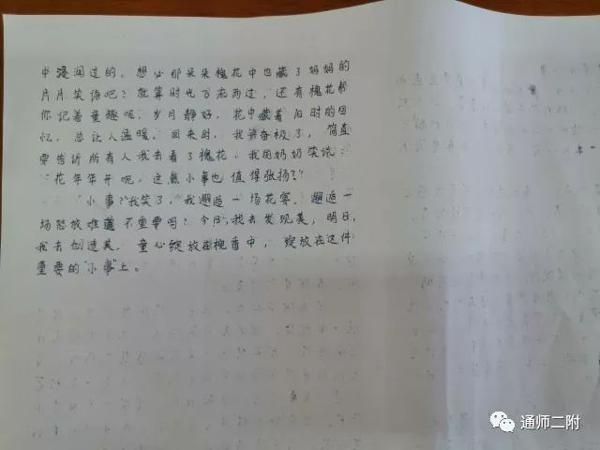 中浸润过的。想必那朵朵槐花中也藏了妈妈的
片片笑语吧？就算时光万流而过，还有槐花帮
你记着童趣呢。岁月静好，花中藏着旧时的回
忆，总让人温暖。回来时，我兴奋极了，简直
要告诉所有人我去看了槐花，我的奶奶笑说：
“花年年开呢，这点小事也值得张扬？”
“小事？”我笑了，我邂逅一场花雾，邂逅一
场怒放难道不重要吗？今日，我去发现美，明日，
我去创造美。童心绽放在槐香中，绽放在这件
重要的“小事”上。
通师二附